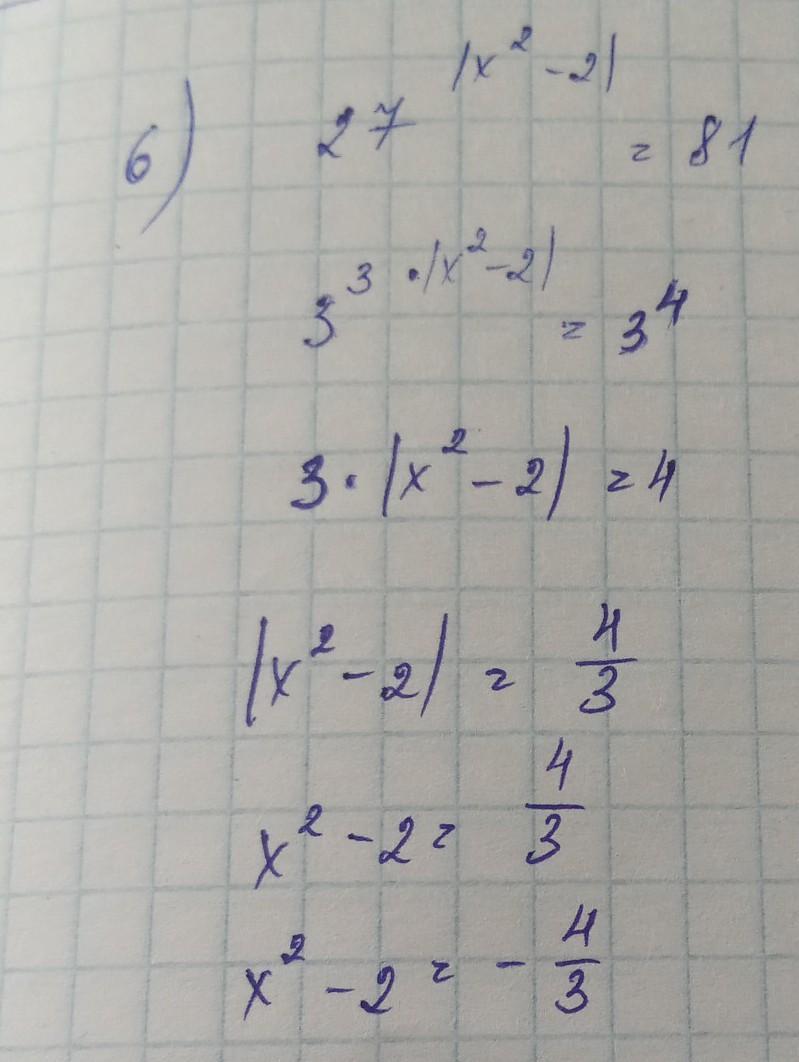 6) 27^|x²-2| = 81
3^3·|x²-2| = 3⁴
3·|x²-2| = 4
|x²-2| = 4/3
x²-2 = 4/3
x²-2 = -4/3